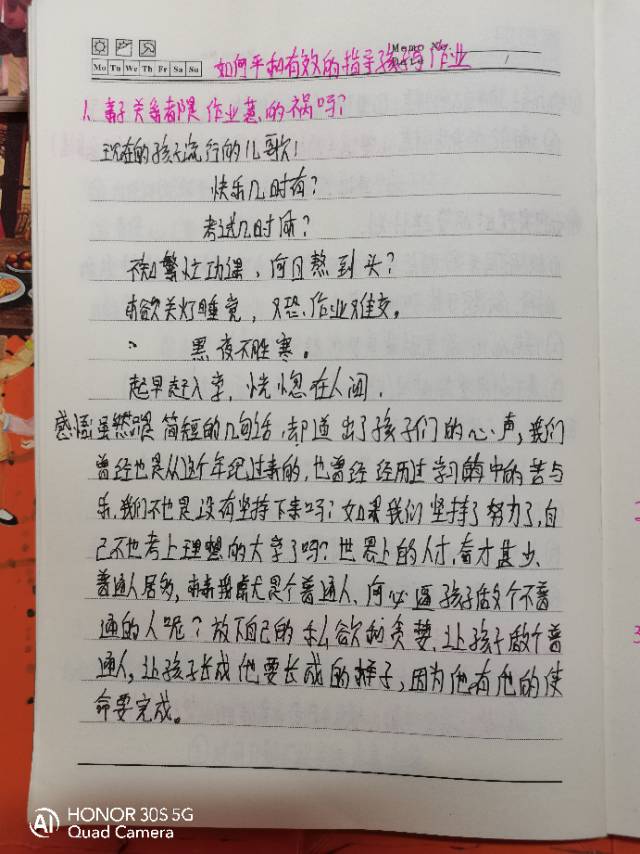 Memo No.
Mo Tu We Th Fr Sa Su
Date
如何平和有效的指导孩子写作业
1、亲子关系都是作业惹的祸吗？
现在的孩子流行的儿歌！
快乐几时有？
考试几时休？
不知繁忙功课，何日熬到头？
我欲关灯睡觉，又恐作业难交。
黑夜不胜寒。
起早赶入室，恍惚在人间，
感悟：虽然只是简短的几句话，却道出了孩子们的心声，我们
曾经也是从这个年纪过来的，也曾经经历过学习的中的苦与
乐，我们不也是没有坚持下来吗？如果我们坚持了努力了，自
己不也考上理想的大学了吗？世界上的人才，奋才甚少、
普通人居多，本来我虑尤是个普通人、何必逼孩子做个不普
通的人呢？放下自己的私欲和贪婪，让孩子做个普
通人，让孩子长成他要长成的样子，因为他有他的使
命要完成。
AI HONOR 30S 5G
Quad Camera